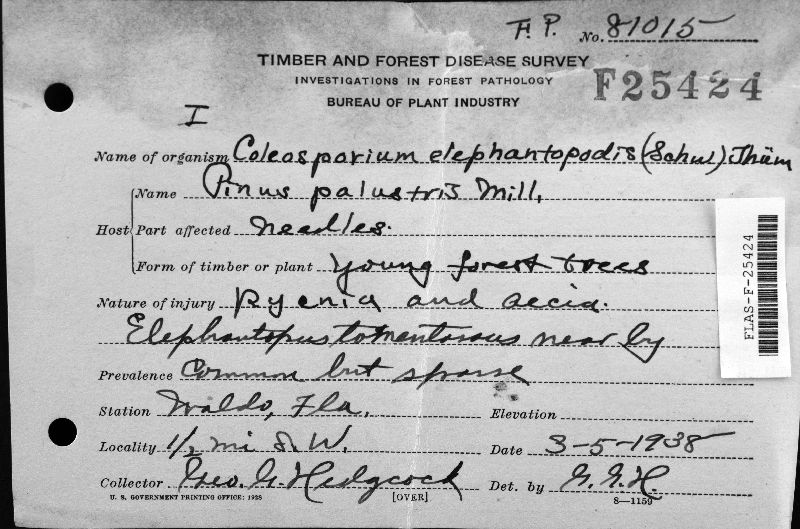 F.P. No. 81015
TIMBER AND FOREST DISEASE SURVEY
INVESTIGATIONS IN FOREST PATHOLOGY
BUREAU OF PLANT INDUSTRY
F25424
I
Name of organism Coleosporium elephantopodis (Schw.) Thüm
Host Name Pinus palustris Mill.
Part affected Needles.
Form of timber or plant Young forest trees
Nature of injury Pycnia and aecia.
Elephantopus tomentosous near by
Prevalence Common but sparse
Station Waldo, Fla. Elevation
Locality 1/2 mi S.W. Date 3-5-1938
Collector Geo. G. Hedgcock Det. by G.G.H
U. S. GOVERNMENT PRINTING OFFICE: 1928 [OVER] 8—1159
FLAS-F-25424